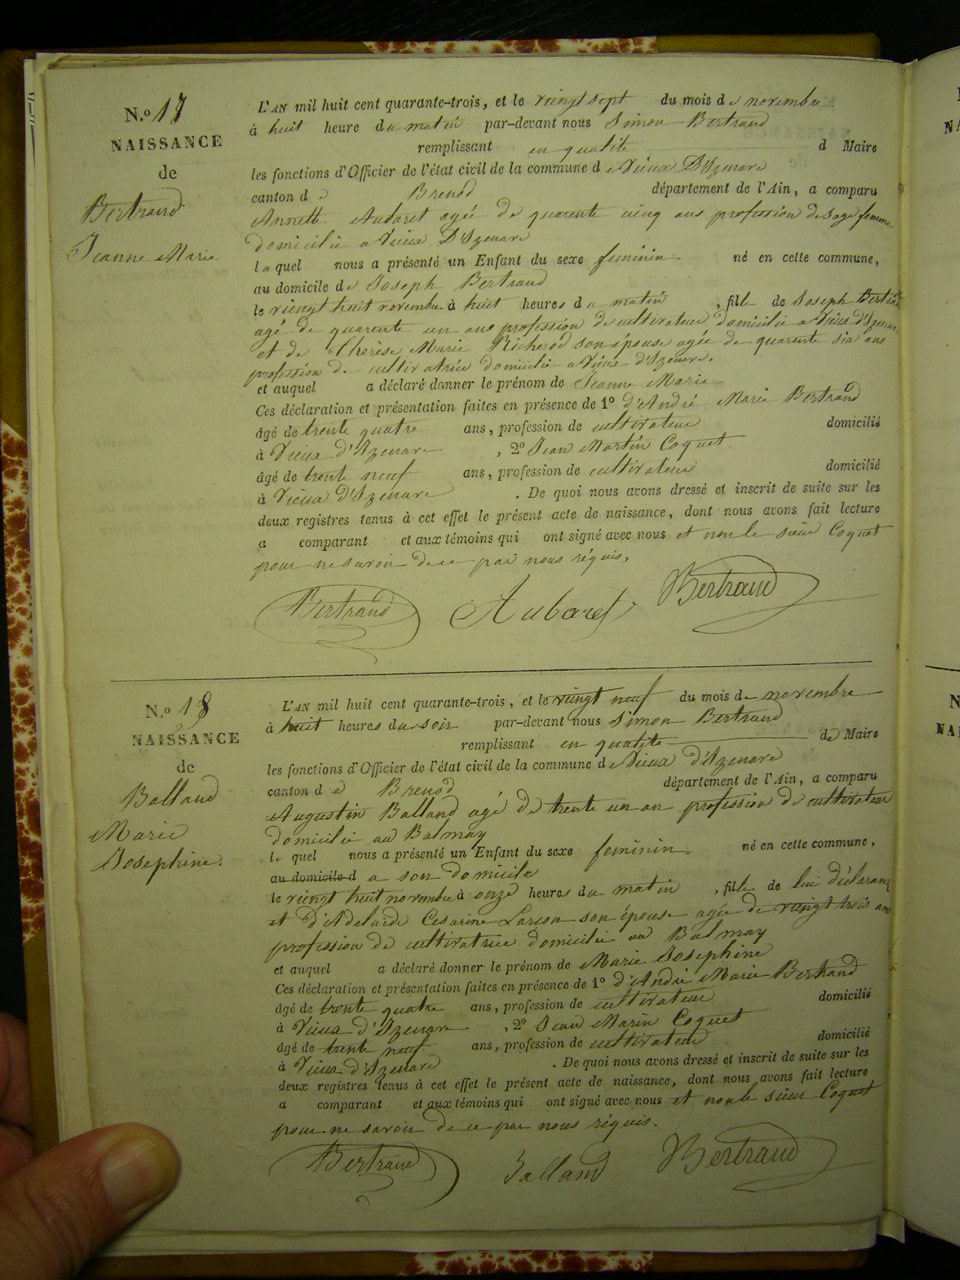 N.o 17
NAISSANCE
de
Bertrand
Jeanne Marie
L'AN mil huit cent quarante-trois, et le vingt sept du mois de novembre
à huit heure du matin par-devant nous Simon Bertrand
remplissant en qualité d Maire
les fonctions d'Officier de l'état civil de la commune de Vieux D'Izenave
canton d e Brenod département de l'Ain, a comparu
Annette Aubaret agée de quarente cinq ans profession de sage femme
domicilié a Vieux D'Izenave
laquel nous a présenté un Enfant du sexe feminin né en cette commune,
au domicile de Joseph Bertrand
le viengt huit novembre à huit heures du matin , fill de Joseph Bertrand
agé de quarente un ans profession de cultivateur domicilié a Vieux d'Izenave
et de Therèse Marie Richerod son epouse agée de quarente six ans
profession de cultivatrice domicilié a Vieux d'Izenave.
et auquel a déclaré donner le prénom de Jeanne Marie
Ces déclaration et présentation faites en présence de 1o d'André Marie Bertrand
âgé de trente quatre ans, profession de cultivateur domicilié
à Vieux d'Izenave , 2o Jean Martin Coquet
âgé de trente neuf ans, profession de cultivateur domicilié
à Vieux d'Izenave . De quoi nous avons dressé et inscrit de suite sur les
deux registres tenus à cet effet le présent acte de naissance, dont nous avons fait lecture
a comparant et aux témoins qui ont signé avec nous et non le sieur Coquet
pour ne savoir de ce par nous réquis.
Bertrand Aubaret Bertrand
N.o 18
NAISSANCE
de
Balland
Marie
Josephine.
L'AN mil huit cent quarante-trois, et le viengt neuf du mois de novembre
à huit heures du soir par-devant nous Simon Bertrand
remplissant en qualité de Maire
les fonctions d'Officier de l'état civil de la commune de Vieux d'Izenave
canton d e Brenod département de l'Ain, a comparu
Augustin Balland agé de trente un an profession de cultivateur
domicilié au Balmay
le quel nous a présenté un Enfant du sexe feminin né en cette commune,
au domicile d a son domicile
le viengt huit novembre à onze heures du matin , fille de lui déclarant
et D'Adelaide Cesarine Larson son épouse agée de viengt trois ans
profession de cultivatrice domicilié au Balmay
et auquel a déclaré donner le prénom de Marie Josephine
Ces déclaration et présentation faites en présence de 1o d'André Marie Bertrand
âgé de trente quatre ans, profession de cultivateur domicilié
à Vieux d'Izenave , 2o Jean Marin Coquet
âgé de trente neuf ans, profession de cultivateur domicilié
à Vieux d'Izenave . De quoi nous avons dressé et inscrit de suite sur les
deux registres tenus à cet effet le présent acte de naissance, dont nous avons fait lecture
a comparant et aux témoins qui ont signé avec nous et non le sieur Coquet
pour ne savoir de ce par nous réquis.
Bertrand Balland Bertrand